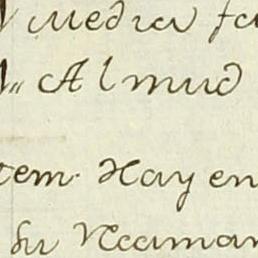 Media fa
Almud
tem. Hay en
su Reaman